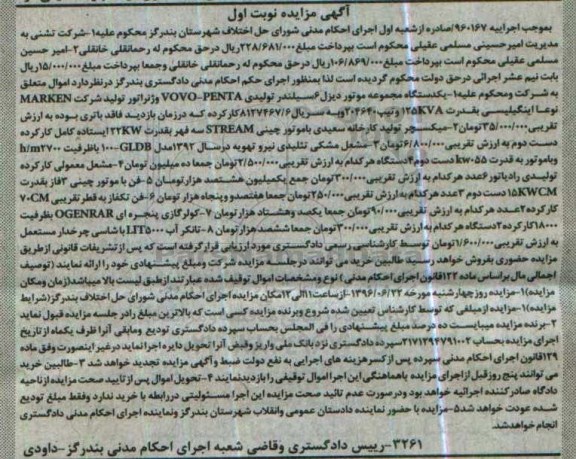 آگهی مزایده نوبت اول
بموجب اجراییه ۹۶۰۱۶۷/صادره ازشعبه اول اجرای احکام مدنی شورای حل اختلاف شهرستان بندرگز محکوم علیه۱-شرکت تشنی به
مدیریت امیرحسینی مسلمی عقیلی محکوم است بپرداخت مبلغ۲۲۸/۶۸۱/۰۰۰ریال درحق محکوم له رحمانقلی خانقلی۲-امیر حسین
مسلمی عقیلی محکوم است بپرداخت مبلغ۱۰۶/۸۶۹/۰۰۰ریال درحق محکوم له رحمانقلی خانقلی وجمعا بپرداخت مبلغ۱۵/۰۰۰/۰۰۰ریال
بابت نیم عشر اجرائی درحق دولت محکوم گردیده است لذا بمنظور اجرای حکم اجرای احکام مدنی دادگستری بندرگز درنظردارد اموال متعلق
به شرکت ومحکوم علیه۱-یکدستگاه مجموعه موتور دیزل۶سیلندر تولیدی VOVO-PENTA وژنراتور تولید شرکت MARKEN
نوعا اینگیلیسی بقدرت ۱۲۵KVA وتیپ۲۰۴۶۴۰وبه سریال۸۱۲۷۴۶۷/۶کارکرده که درزمان بازدید فاقد باتری بوده به ارزش
تقریبی۳۵/۰۰۰/۰۰۰تومان۲-میکسچر تولید کارخانه سعیدی باموتور چینی STREAM سه قهر بقدرت ۲۲KW ایستاده کامل کارکرده
دست دوم به ارزش تقریبی۶/۸۰۰/۰۰۰تومان۳-مشعل مشکی تثلیدی نیرو تهویه درسال ۱۳۹۲مدل GLDB-۱۰۰ باظرفیت h/m۲۷۰۰
وباموتور به قدرت kw۰۵۵ دست دوم۴دستگاه هرکدام به ارزش تقریبی۲/۵۰۰/۰۰۰تومان جمعا ده میلیون تومان۴-مشعل معمولی کارکرده
تولیدی رادیاتور۶عدد هرکدام به ارزش تقریبی۳۰۰/۰۰۰تومان جمع یکمیلیون هشتصد هزارتومان ۵-فن با موتور چینی ۳فاز بقدرت
۱۵KWCM دست دوم ۳عدد هرکدام به ارزش تقریبی۲۵۰/۰۰۰تومان جمعا هفتصدو پنجاه هزار تومان ۶-فن تکفاز به قطر تقریبی ۷۰CM
کارکرده۲عدد هرکدام به ارزش تقریبی۹۰/۰۰۰تومان جمعا یکصد وهشتاد هزارتومان ۷-کولرگازی پنجره ای OGENRAR بظرفیت
۱۸۰۰۰کارکرده۲دستگاه هرکدام به ارزش تقریبی۳۰۰/۰۰۰تومان جمعا ششصد هزارتومان ۸-تانکر آب LIT۵۰۰۰ باشاسی چرخدار مستعمل
به ارزش تقریبی۱/۶۰۰/۰۰۰تومان توسط کارشناسی رسمی دادگستری مورد ارزیابی قرارگرفته است که پس ازتشریفات قانونی ازطریق
مزایده حضوری بفروش خواهد رسید طالبین خرید می توانند درجلسه مزایده شرکت ومبلغ پیشنهادی خود را ارائه نمایند (توصیف
اجمالی مال براساس ماده ۱۲۲قانون اجرای احکام مدنی) نوع ومشخصات اموال توقیف شده عبارتند ازطبق لیست بالا میباشد(زمان ومکان
مزایده)۱-مزایده روز چهارشنبه مورخه ۱۳۹۶/۰۶/۲۲-ازساعت۱۱الی۱۲مکان مزایده اجرای احکام مدنی شورای حل اختلاف بندرگز(شرایط
مزایده)۱-مزایده ازمبلغی که توسط کارشناس تعیین شده شروع وبرنده مزایده کسی است که بالاترین مبلغ رادر جلسه مزایده قبول نماید
۲-برنده مزایده میبایست ده درصد مبلغ پیشنهادی را فی المجلس بحساب سپرده دادگستری تودیع ومابقی آنرا ظرف یکماه ازتاریخ
اجرای مزایده بحساب۲۱۷۱۲۹۴۷۹۱۰۰۲سپرده دادگستری نزد بانک ملی واریز وقبض آنرا تحویل دایره اجرانماید درغیر اینصورت وفق ماده
۱۲۹قانون اجرای احکام مدنی سپرده پس ازکسرهزینه های اجرایی به نفع دولت ضبط وآگهی مزایده تجدید خواهد شد ۳-طالبین خرید
می توانند پنج روز قبل ازاجرای مزایده باهماهنگی این اجرا اموال توقیفی را بازدیدنمایند ۴-تحویل اموال پس ازتایید صحت مزایده ازناحیه
دادگاه صادرکننده اجرائیه خواهد بود ودرصورت عدم تائید صحت مزایده این اجرا مسئولیتی دررابطه با خرید ندارد وفقط مبلغ تودیع
شده عودت خواهد شد۵-مزایده با حضور نماینده دادستان عمومی وانقلاب شهرستان بندرگز ونماینده اجرای احکام مدنی دادگستری
انجام خواهدشد.
۳۲۶۱-رییس دادگستری وقاضی شعبه اجرای احکام مدنی بندرگز-داودی